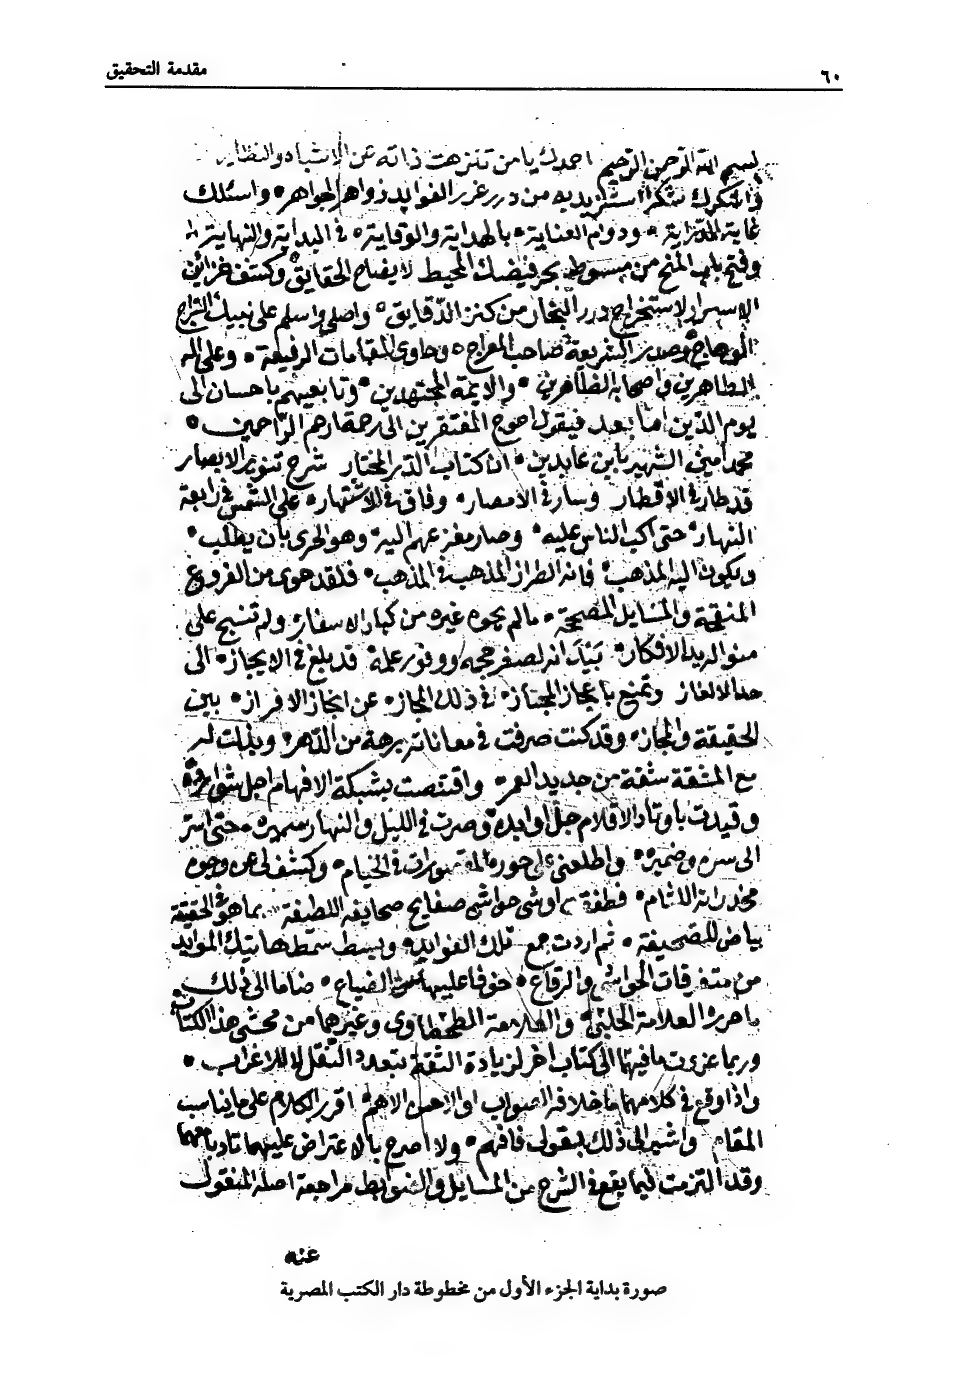 مقدمة التحقيق
٦٠
بسم الله الرحمن الرحيم احمدك يا من تنزهت ذاته عن الاشباه والنظاير
واشكرك شكرا استزيد به من درر غرر الفوايد زواهر الجواهر واسئلك
غاية الدراية ودوام العناية بالهداية والوقاية في البداية والنهاية
وفتح باب المنح من مبسوط بحر فيضك المحيط لايضاح الحقايق وكشف خزاين
الاسرار لاستخراج درر البحار من كنز الدقايق واصلي واسلم على نبيك السراج
الوهاج وصدر الشريعة صاحب المعراج وحاوي المقامات الرفيعة وعلى اله
الطاهرين واصحابه الظاهرين والايمة المجتهدين وتابعيهم باحسان الى
يوم الدين اما بعد فيقول احوج المفتقرين الى رحمة ارحم الراحمين
محمد امين الشهير بابن عابدين ان كتاب الدر المختار شرح تنوير الابصار
قد طار في الاقطار وسار في الامصار وفاق في الاشتهار على الشمس في رابعة
النهار حتى اكب الناس عليه وصار مفزعهم اليه وهو الحري بان يطلب
ويكون اليه المذهب فانه الطراز المذهب في المذهب فلقد حوى من الفروع
المنقحة والمسايل المصححة ما لم يحوه غيره من كبار الاسفار ولم تنسج على
منواله يد الافكار بيد انه لصغر حجمه ووفور علمه قد بلغ في الايجاز الى
حد الالغاز وتمنع باعجاز المجاز في ذلك المجاز عن انجاز الافراز بين
الحقيقة والمجاز وقد كنت صرفت في معاناته برهة من الدهر وبذلت له
مع المشقة شقة من جديد العمر واقتنصت بشبكة الافهام اجل شوارده
وقيدت باوتاد الاقلام جل اوابده وصرت في الليل والنهار سميره حتى اسر
الى سره وضميره واطلعني على حوره المقصورات في الخيام وكشف لي عن وجوه
مخدراته اللثام فطفقت اوشي حواشي صفايح صحايفه اللطيفة بما هو في الحقيقة
بياض للصحيفة ثم اردت جمع تلك الفوايد وبسط سمط هاتيك الموايد
من متفرقات الحواشي والرقاع خوفا عليها من الضياع ضاما الى ذلك
ما حرره العلامة الحلبي والعلامة الطحطاوي وغيرهما من محشي هذا الكتاب
وربما عزوت ما فيهما الى كتاب اخر لزيادة الثقة بتعدد النقل لا للاغراب
واذا وقع في كلامهما ما خلافه الصواب او الاحسن الاهم اقرر الكلام على ما يناسب
المقام واشير الى ذلك بقولي فافهم ولا اصرح بالاعتراض عليهما تادبا معهما
وقد التزمت فيما يقع في الشرح من المسايل والضوابط مراجعة اصله المنقول
عنه
صورة بداية الجزء الأول من مخطوطة دار الكتب المصرية